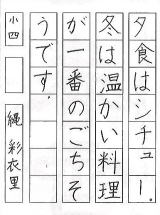 夕食はシチュー。
冬は温かい料理
が一番のごちそ
うです。
小四
縄 彩衣里